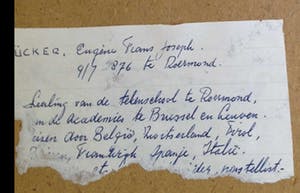 ÜCKER, Eugène Frans Joseph.
9/7 876 te Roermond.
Leerling van de tekenschool te Roermond,
en de Academies te Brussel en Leuven.
eizen door België, Zwitserland, Tirol,
Frankrijk Spanje, Italië.